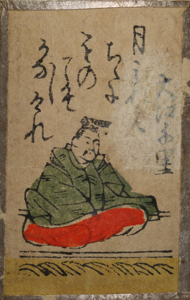 大江千里
月みれは
ちゝに
もの
こそ
かなし
けれ